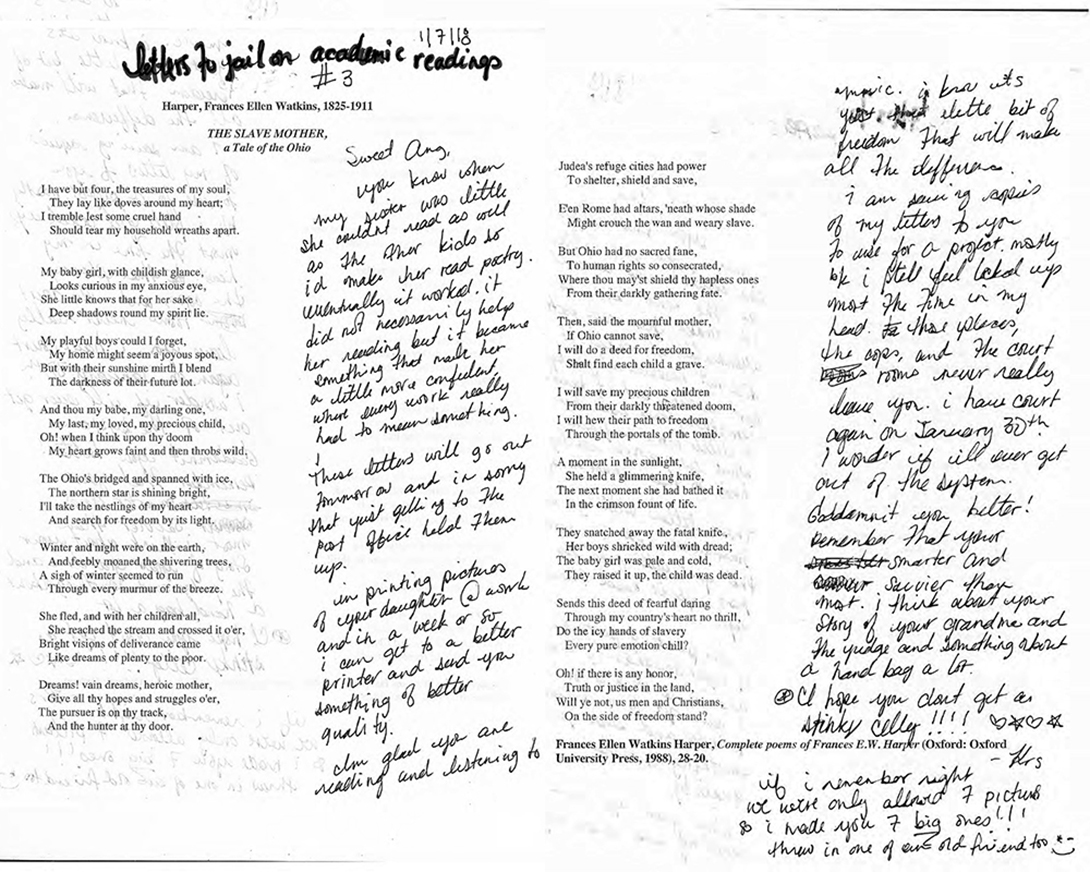 1/7/18
letters to jail on academic readings
#3
Harper, Frances Ellen Watkins, 1825-1911
THE SLAVE MOTHER,
a Tale of the Ohio
I have but four, the treasures of my soul,
They lay like doves around my heart;
I tremble lest some cruel hand
Should tear my household wreaths apart.
My baby girl, with childish glance,
Looks curious in my anxious eye,
She little knows that for her sake
Deep shadows round my spirit lie.
My playful boys could I forget,
My home might seem a joyous spot,
But with their sunshine mirth I blend
The darkness of their future lot.
And thou my babe, my darling one,
My last, my loved, my precious child,
Oh! when I think upon thy doom
My heart grows faint and then throbs wild.
The Ohio's bridged and spanned with ice,
The northern star is shining bright,
I'll take the nestlings of my heart
And search for freedom by its light.
Winter and night were on the earth,
And feebly moaned the shivering trees,
A sigh of winter seemed to run
Through every murmur of the breeze.
She fled, and with her children all,
She reached the stream and crossed it o'er,
Bright visions of deliverance came
Like dreams of plenty to the poor.
Dreams! vain dreams, heroic mother,
Give all thy hopes and struggles o'er,
The pursuer is on thy track,
And the hunter at thy door.
Sweet Ang,
you know when
my sister was little
she couldnt read as well
as the other kids so
i'd make her read poetry.
eventually it worked. it
did not necessarily help
her reading but it became
something that made her
a little more confident,
where every work really
had to mean something.
These letters will go out
tommorrow and im sorry
that just getting to the
post office held them
up.
im printing pictures
of your daughter @ work
and in a week or so
i can get to a better
printer and send you
something of better
quality.
Im glad you are
reading and listening to
Judea's refuge cities had power
To shelter, shield and save,
E'en Rome had altars, 'neath whose shade
Might crouch the wan and weary slave.
But Ohio had no sacred fane,
To human rights so consecrated,
Where thou may'st shield thy hapless ones
From their darkly gathering fate.
Then, said the mournful mother,
If Ohio cannot save,
I will do a deed for freedom,
Shalt find each child a grave.
I will save my precious children
From their darkly threatened doom,
I will hew their path to freedom
Through the portals of the tomb.
A moment in the sunlight,
She held a glimmering knife,
The next moment she had bathed it
In the crimson fount of life.
They snatched away the fatal knife,
Her boys shrieked wild with dread;
The baby girl was pale and cold,
They raised it up, the child was dead.
Sends this deed of fearful daring
Through my country's heart no thrill,
Do the icy hands of slavery
Every pure emotion chill?
Oh! if there is any honor,
Truth or justice in the land,
Will ye not, us men and Christians,
On the side of freedom stand?
Frances Ellen Watkins Harper, Complete poems of Frances E.W. Harper (Oxford: Oxford
University Press, 1988), 28-20.
music. i know its
just that little bit of
freedom that will make
all the difference.
i am saving copies
of my letters to you
to use for a project. mostly
bk i still feel locked up
most the time in my
head. those places,
the cops, and the court
rooms never really
leave you. i have court
again on January 30th.
I wonder if ill ever get
out of the system.
Goddamnit you better!
remember that your
smarter and
savvier then
most. i think about your
story of your grandma and
the judge and something about
a hand bag a lot.
I hope you dont get a
stinky celly!!!! ♡☆♡☆
if i remember right
we were only allowed 7 picture
so i made you 7 big ones!!!
threw in one of an old friend too